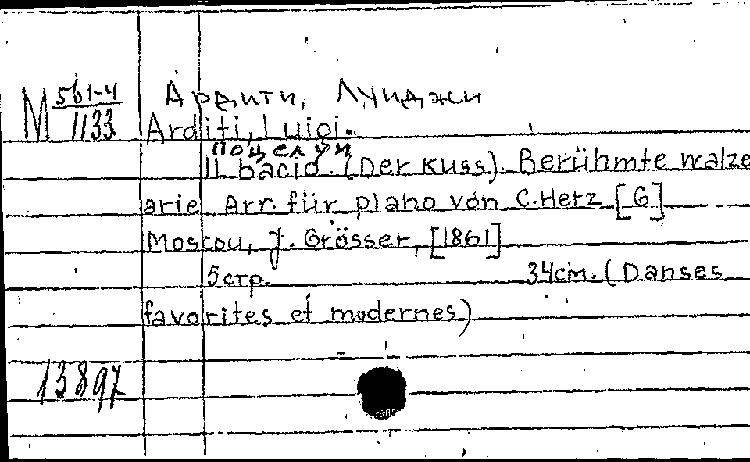 М 561-4/1133
Ардити, Луиджи
Arditi, Luigi.
Поцелуй
Il bacio. (Der Kuss). Berühmte walze
arie Arr. für piano von C. Herz [G]
Moscou, J. Grösser, [1861]
5 стр. 34 cm. (Danses
favorites et modernes)
13897